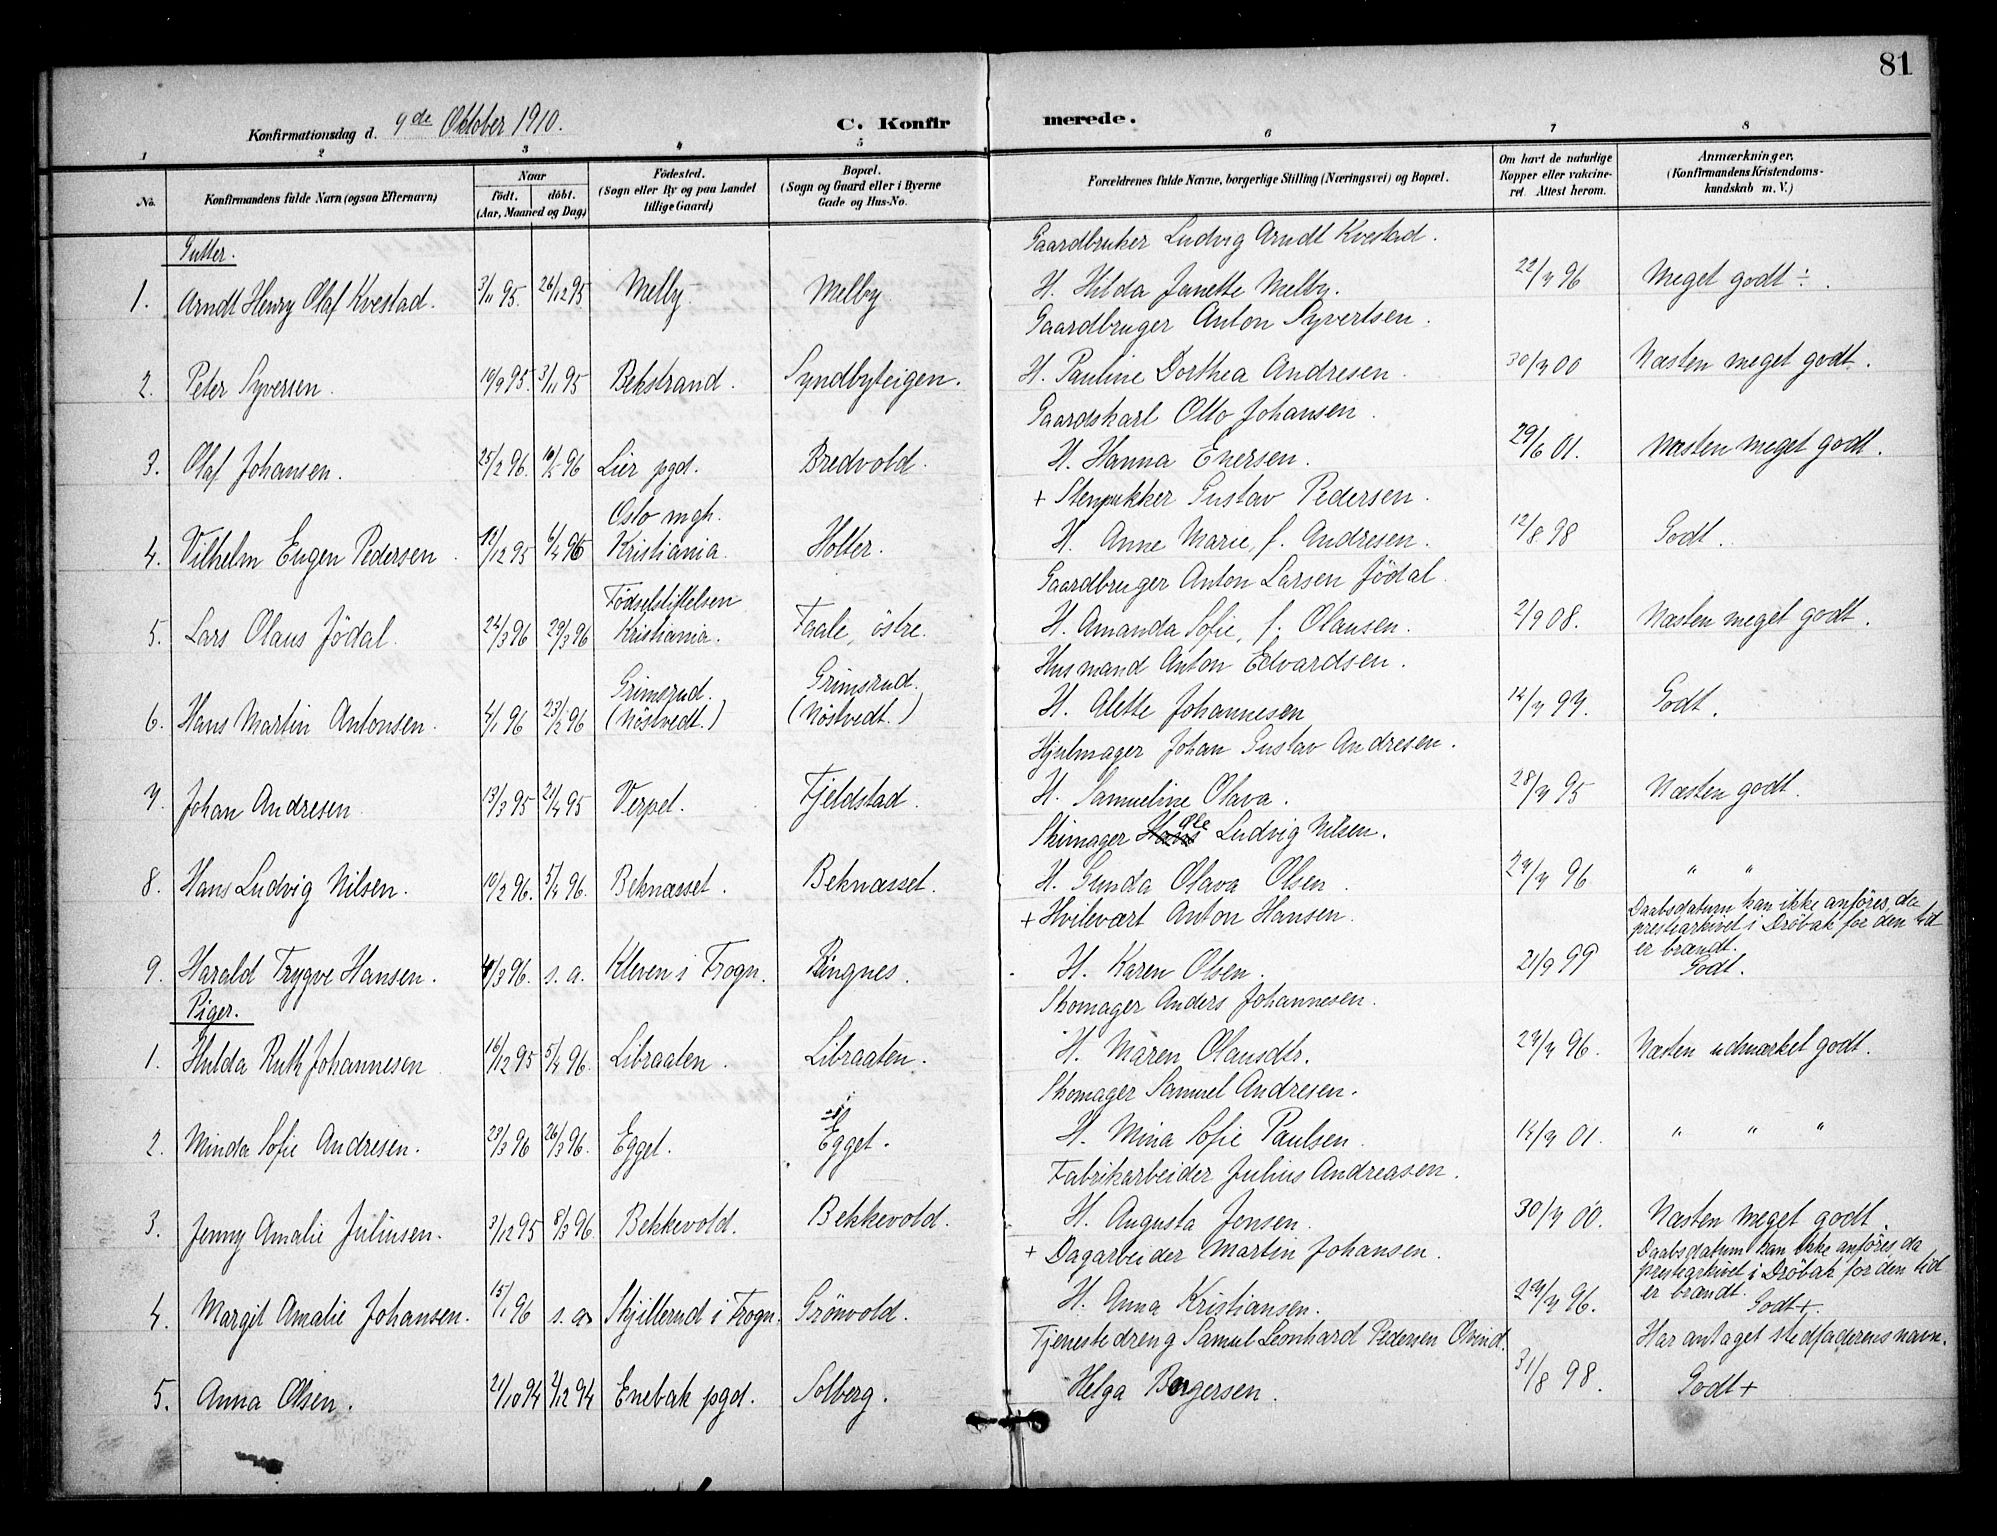 81
Konfirmationsdag d. 9de Oktober 1910.
C. Konfirmerede.
1 2 3 4 5 6 7 8
No.
Konfirmandens fulde Navn (ogsaa Efternavn)
Naar
født. døbt.
(Aar, Maaned og Dag)
Fødested.
(Sogn eller By og paa Landet
tillige Gaard)
Bopæl.
(Sogn og Gaard eller i Byerne
Gade og Hus-No.
Forældrenes fulde Navne, borgerlige Stilling (Næringsvei) og Bopæl.
Om havt de naturlige
Kopper eller vakcine-
ret. Attest herom.
Anmærkninger.
(Konfirmandens Kristendoms-
kundskab m. V.)
Gutter.
Gaardbruker Ludvig Arndt Kvestad.
1. Arndt Henry Olaf Kvestad. 3/11 95. 26/12 95 Melby. Melby. H. Hilda Janette Melby. 22/7 96 Meget godt ÷.
Gaardbruger Anton Syvertsen.
2. Peter Syversen. 19/9 95. 3/11 95 Bekstrand. Syndbyteigen. H. Pauline Dorthea Andresen. 30/7 00 Næsten meget godt.
Gaardskarl Otto Johansen.
3. Olaf Johansen. 25/2 96. 10/5 96 Lier pgd. Bredvold. H. Hanna Enersen. 29/6 01. Næsten meget godt.
Oslo mgh.
+ Stenpukker Gustav Pedersen.
4. Vilhelm Eugen Pedersen. 12/12 95 6/4 96 Kristiania. Holter. H. Anne Marie, f. Andresen. 12/8 98 Godt.
Fødselsstiftelsen
Gaardbruger Anton Larsen Jødal.
5. Lars Olaus Jødal. 22/3 96 29/3 96 Kristiania. Faale, østre. H. Amanda Sofie, f. Olausen. 2/9 08. Næsten meget godt.
Grimsrud. Grimsrud.
Husmand Anton Edvardsen.
6. Hans Martin Antonsen. 4/1 96 23/2 96 (Nöstvedt.) (Nöstvedt.) H. Alette Johannesen 14/7 99. Godt.
Hjulmager Johan Gustav Andresen.
7. Johan Andresen. 13/3 95 21/4 95 Verpet. Fjeldstad. H. Samueline Olava. 28/7 95 Næsten godt.
Skimager Hans Ole Ludvig Nilsen.
8. Hans Ludvig Nilsen. 19/2 96. 5/4 96. Beknæsset. Beknæsset. H. Gunda Olava Olsen. 27/7 96 " "
+ Hvilevært Anton Hansen.
Daabsdatum kan ikke anføres, da
prestiarkivet i Drøbak for den tid
er brændt.
9. Harald Trygve Hansen. /3 96. s. a. Kleven i Frogn. Ringnes. H. Karen Olsen. 21/9 99 Godt.
Piger.
Skomager Anders Johannesen.
1. Hulda Ruth Johannesen 16/12 95 5/4 96. Libraaten. Libraaten. H. Maren Olausdtr. 27/7 96. Næsten udmærket godt.
Skomager Samuel Andresen.
2. Minda Sofie Andresen. 23/3 96 26/3 96. Egget. Egget. H. Mina Sofie Paulsen. 14/7 01. " " "
Fabrikarbeider Julius Andreasen.
3. Jenny Amalie Juliusen. 3/12 95 8/3 96. Bekkevold. Bekkevold. H. Augusta Jensen. 30/7 00. Næsten meget godt.
+ Dagarbeider Martin Johansen.
Daabsdatum kan ikke anføres, da
prestiarkivet i Drøbak for den tid
er brændt.
4. Margit Amalie Johansen. 15/1 96 s. a. Skjillerud i Frogn. Grönvold. H. Anna Kristiansen. 29/7 96. Godt +.
Tjenestedreng Samul Leonhard Pedersen Øvind.
Har antaget stedfaderens navn.
5. Anna Olsen. 21/10 94 2/12 94 Enebak pgd. Solberg. Helga Borgersen. 31/8 98. Godt +